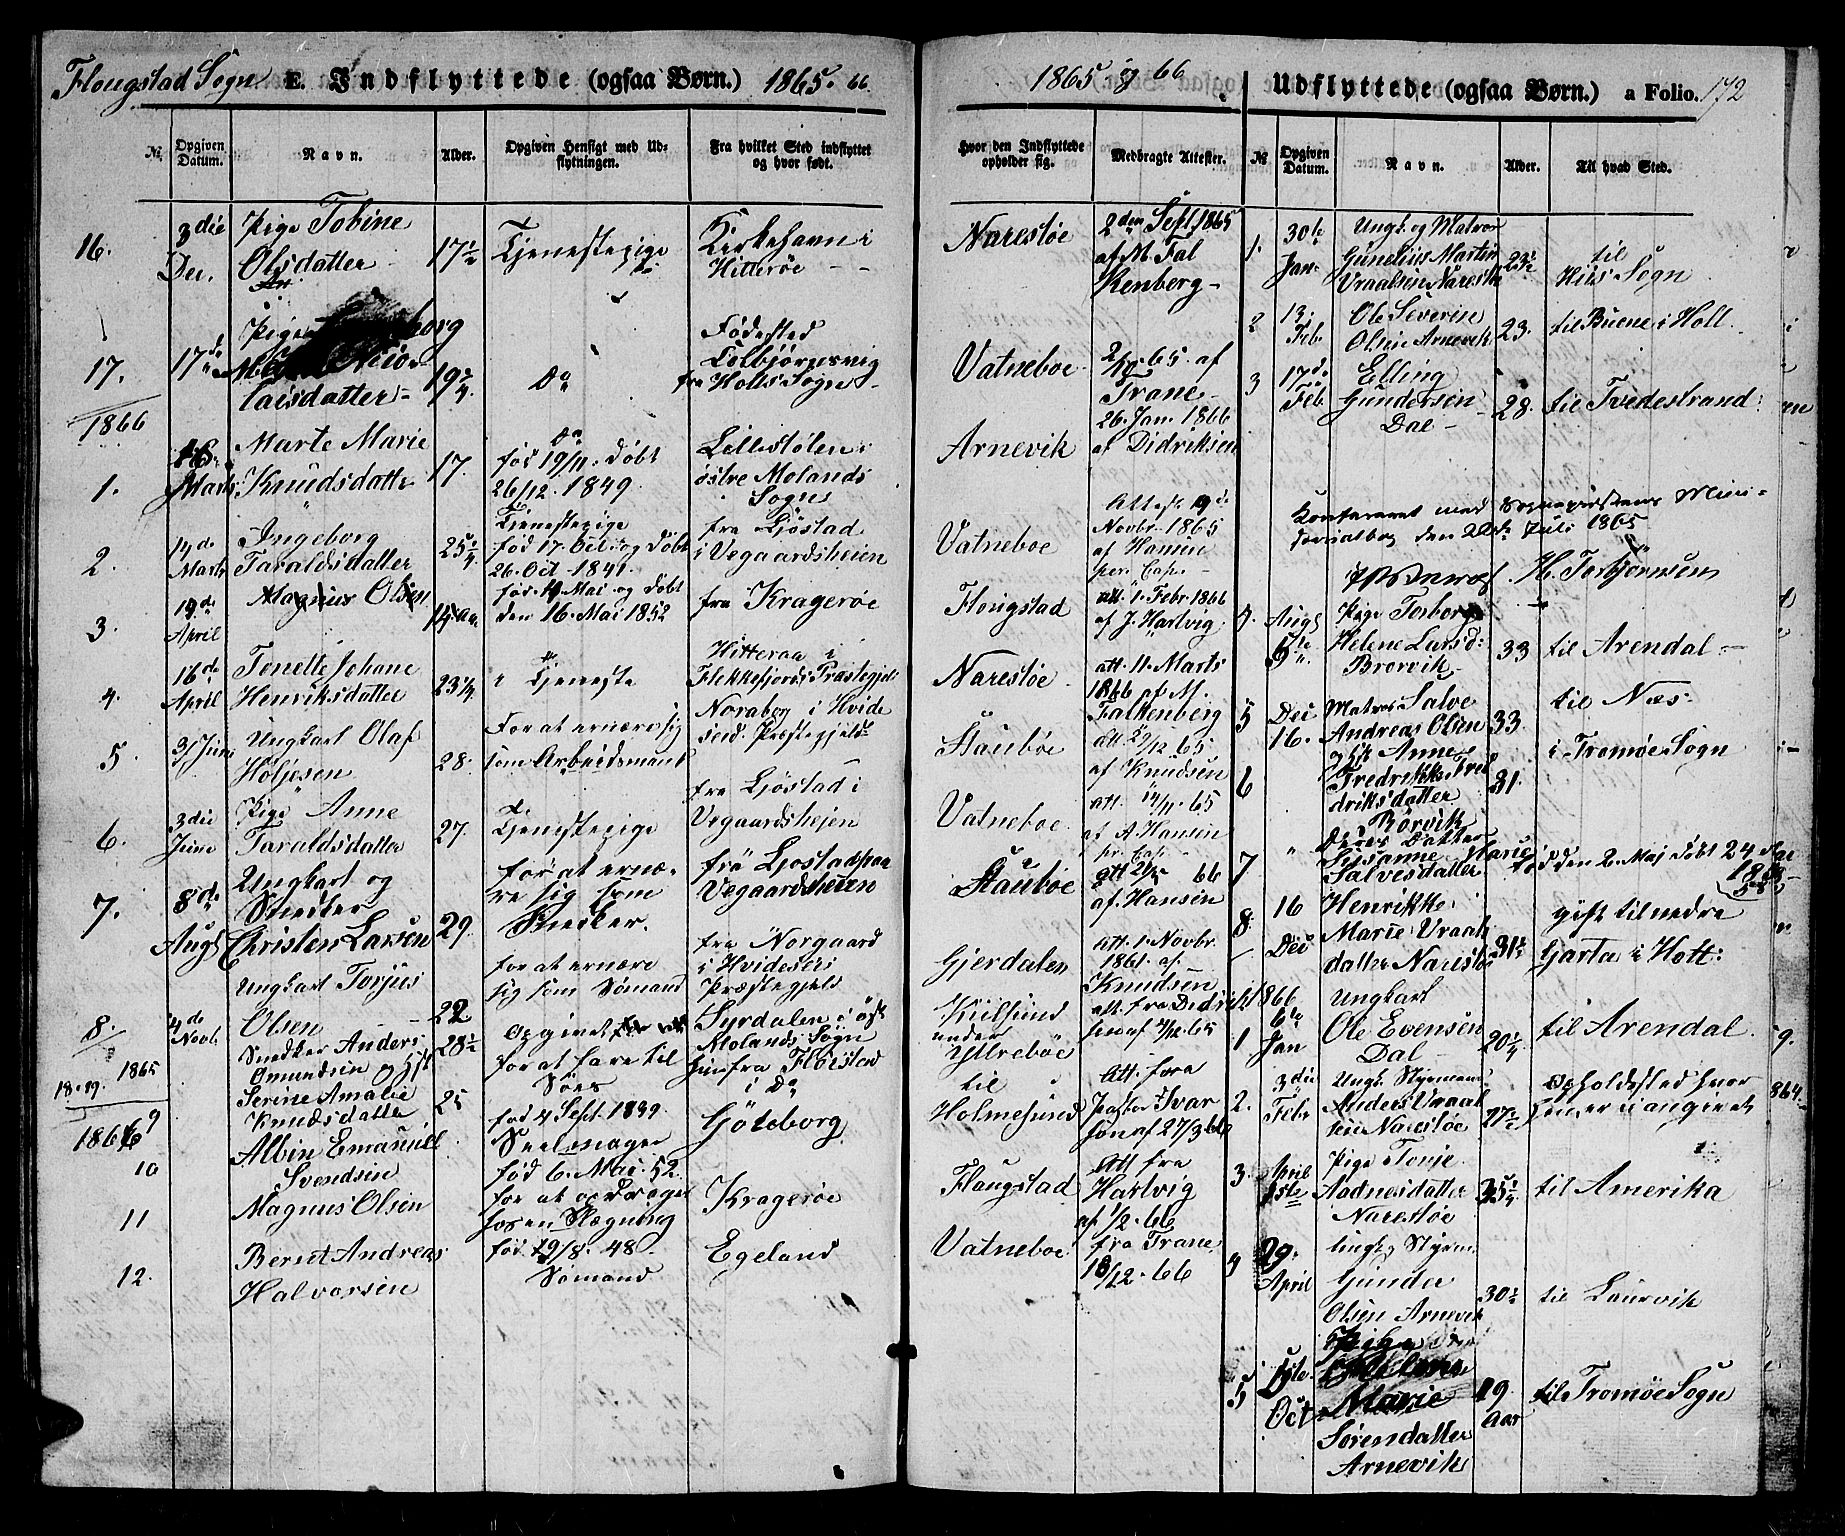 Flougstad Sogn E. Indflyttede (ogsaa Børn.) 1865. 66.
No. Opgiven Datum. Navn. Alder. Opgiven Hensigt med Udflytningen. Fra hvilket Sted indflyttet og hvor født.
16. 3die Dec. Pige Tobine
Olsdatter 17½ Tjenestepige Kirkehavn i
Hitterøe
17. 17de Pige
Nico-
laisdatter 19 Do Fødested
Colbjørnsvig
fra Holts Sogn
1866
1. Marts Marte Marie
Knudsdatter 17. Do
fød 19/11. døbt
26/12. 1849. Lillestølen i
østre Molands
Sogn
2. 14de Marts Ingeborg
Taraldsdatter 25¼ Tjenestepige
fød 17. Oct. og døbt
26. Oct. 1841. fra Ljøstad
i Vegaardsheien
3. 19de April Magnus Olsen 14 Aar fød 4 Mai og døbt
den 16. Mai 1852 fra Kragerøe
4. 16de April Tonette Johane
Henriksdatter 23¼ Tjeneste Hitteraa i
Flekkefjords Præstegjeld
5. 3/Juni Ungkarl Olaf
Høljesen 28. For at ernære sig
som Arbeidsmand Noraberg i Hvide
seid Præstegjeld
6. 3die Juni Pige Anne
Taraldsdatter 27. Tjenestepige fra Ljøstad i
Vegaardsheien
7. 8de Augs Ungkarl og
Snedker
Christen Larsen 29. for at ernæ-
re sig som
Snedker. fra Ljøstad paa
Vegaardsheien
8. 4de Novb. Ungkarl Torjus
Olsen 22 for at ernære
sig som Sømand fra Norgaard
i Hvideseid
Præstegjeld
1865
18. 19. Snedker Anders
Omundsen og Hst
Serine Amalie
Knudsdatter 28½
25 Opgivet
for at fare til
Søes Syrdalen i øst
Molands Sogn
hun fra Fløisted
i Do
1866 9 Albin Emanuel
Svendsen fød 4 Sept. 1839
Seilmager Göteborg
10
11 Magnus Olsen fød 6. Mai. 52.
for at opdrages
hos en Slægning Kragerøe
12. Bernt Andreas
Halvorsen fød 19/8. 48.
Sømand Egeland
1865 og 66 Udflyttede (ogsaa Børn.) a Folio. 172
Hvor den Indflyttede opholder sig. Medbragte Attester. No. Opgiven Datum. Navn. Alder. Til hvad Sted.
Narestøe 2den Sept. 1865
af M. Fal
kenberg
Vatneboe 2/10 65. af
Trane
Arnevik 26. Jan. 1866
af Didriksen
Vatneboe Attest 9de
Novbr. 1865
af Hansen
per. Cap.
Flougstad att. 1. Febr. 1866
af J. Hartvig
Narestøe att. 11. Marts
1866 af M.
Falkenberg
Staubøe att. 21/12 65.
af Knudsen
Vatneboe att. 14/11. 65
af A. Hansen
pr. Cap.
Staubøe att 66
af Hansen
Gjerdalen att. 1. Novbr.
1861. af
Knudsen
Kilsund
under
Yttrebøe att. fra Didrich
sen af 4/12 65
til
Holmesund Att. fra
Pastor Ivar
son af 27/3 66
Flaugstad Att fra
Hartvig
af 1/2. 66
Vatneboe fra Trane
18/12. 66
1. 30te Jan. Ungk. og Matros
Gunelius Martin
Vraalsen Narestø 23½ til
Hiis Sogn
2 13. Feb Ole Severin
Olsen Arnevik 23. til Buene i Holt
3 17de Feb. Elling
Gundersen
Dal 28. til Tvedestrand
Konfereret med Sognepræstens Mini-
sterialbog den 22de Juli 1865
H. Torbjørnsen
Augs 5te Pige Torborg
Helene Larsd:
Borvik 33 til Arendal
5 Dec 16. Matros Salve
Andreas Olsen 33. til Næs
6 og Hst Anne
Fredrikke Fred
driksdatter
Børvik 31. i Tromøe Sogn
7 Deres Datter
Susanne Marie
Salvesdatter fød den 2. Maj døbt 24
8. 16 Dec Henrikke
Marie Vraals
datter Narestø 31½ gift til nedre
Garta i Holt:
1866
1 6te Jan Ungkarl
Ole Evensen
Dal 20¼ til Arendal.
2. 3die Febr Ungk. Styrmand
Anders Vraal
sen Narestøe 27½ Opholdssted hvor
hen er ei angivet
3. April 1ste Pige Tonje
Aadnesdatter
Narestøe 25¼ til Amerika
29. April Ungk. Styrm.
Gunder
Olsen Arnevik 30½ til Laurvik
5 Oct Pige
Marie
Sørendatter
Arnevik 19
Aar til Tromøe Sogn